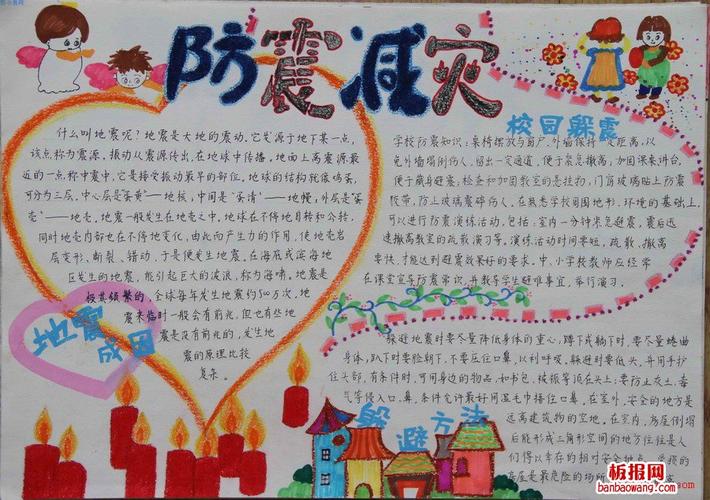 防震减灾
什么叫地震呢?地震是大地的震动。它发源于地下某一点,
该点称为震源。振动从震源传出,在地球中传播。地面上离震源最
近的一点称中震中,它是接受振动最早的部位。地球的结构就像鸡蛋,
可分为三层。中心层是“蛋黄”——地核,中间是“蛋清”——地慢,外层是“蛋
壳”——地壳。地震一般发生在地壳之中,地球在不停地自转和公转,
同时地壳内部也在不停地变化,由此而产生力的作用,使地壳岩
层变形、断裂、错动,于是便发生地震。在海底或滨海地
区发生的地震,能引起巨大的波浪,称为海啸。地震是
极其频繁的,全球每年发生地震约500万次,地
震来临时一般会有前兆,但也有些地
震是没有前兆的,发生地
震的原理比较
复杂。
地震
成因
校园躲震
学校防震知识:桌椅摆放与窗户、外墙保持一定距离,以
免外墙塌倒伤人,留出一定通道,便于紧急撤离;加固课桌讲台,
便于藏身避震;检查和加固教室的悬挂物,门窗玻璃贴上防震
胶带,防止玻璃震碎伤人,在熟悉学校周围地形、环境的基础上,
可以进行防震演练活动,包括:室内一分钟紧急避震,震后迅
速撤离教室的疏散演习等,演练活动时间要短,疏散、撤离
要快,才能达到避震效果好的要求。中、小学校教师应经常
在课堂宣导防震常识,并教导学生避难事宜,举行演习。
躲避地震时要尽量降低身体的重心,蹲下或躺下时,要尽量蜷曲
身体,趴下时要脸朝下,不要压住口鼻,以利呼吸,躲避时要低头,并用手护
住头部,有条件时,可用身边的物品,如书包、被褥等顶在头上;要防止灰土、毒
气等侵入口、鼻,条件允许最好用湿毛巾捂住口鼻。在室外,安全的地方是
远离建筑物的空地。在室内,房屋倒塌
后能形成三角形空间的地方往往是人
们得以幸存的相对安全地点
房屋是最危险的场所
躲避方法
板报网
banbaowang.com